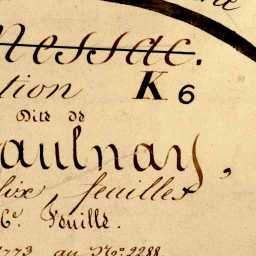 Messac.
tion K 6
Dite de
aulnay,
dix feuilles
6e. Feuille.
1773 au No. 2288